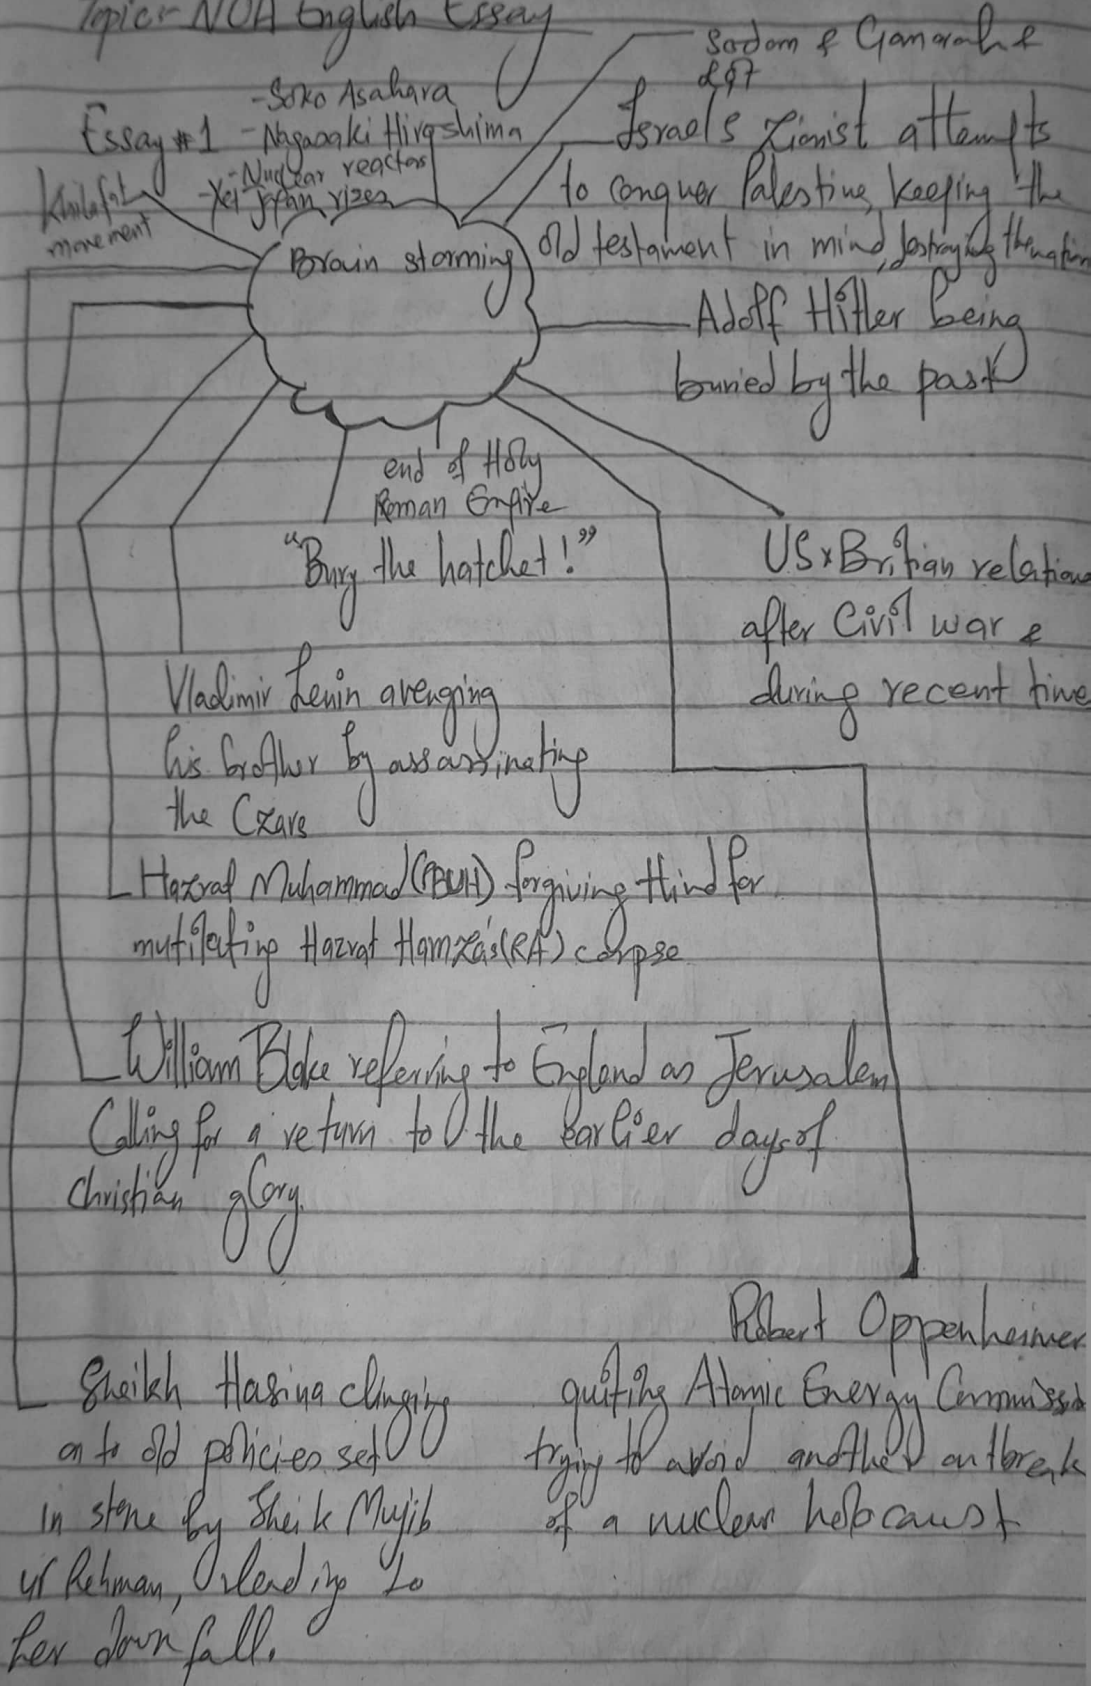 Topic:- NOA English Essay
Sodom & Gamorah &
Essay #1
- Soko Asahara
- Nagasaki Hiroshima
- Nuclear reactor
Japan rizes
Khilafat
movement
Brain storming
Israel's Zionist attempts
to conquer Palestine, keeping the
old testament in mind, destroying the nation
Adolf Hitler being
buried by the past
end of Holy
Roman Empire
"Bury the hatchet!"
US x Britian relations
after Civil war &
during recent time
Vladimir Lenin avenging
his brother by assassinating
the Czars
Hazrat Muhammad (PBUH) forgiving Hind for
mutilating Hazrat Hamza's (RA) corpse
William Blake referring to England as Jerusalem
Calling for a return to the earlier days of
Christian glory.
Robert Oppenheimer
quiting Atomic Energy Commission
trying to avoid another outbreak
of a nuclear holocaust
Sheikh Hasina clinging
on to old policies set
in stone by Sheik Mujib
ur Rehman, leading to
her downfall.